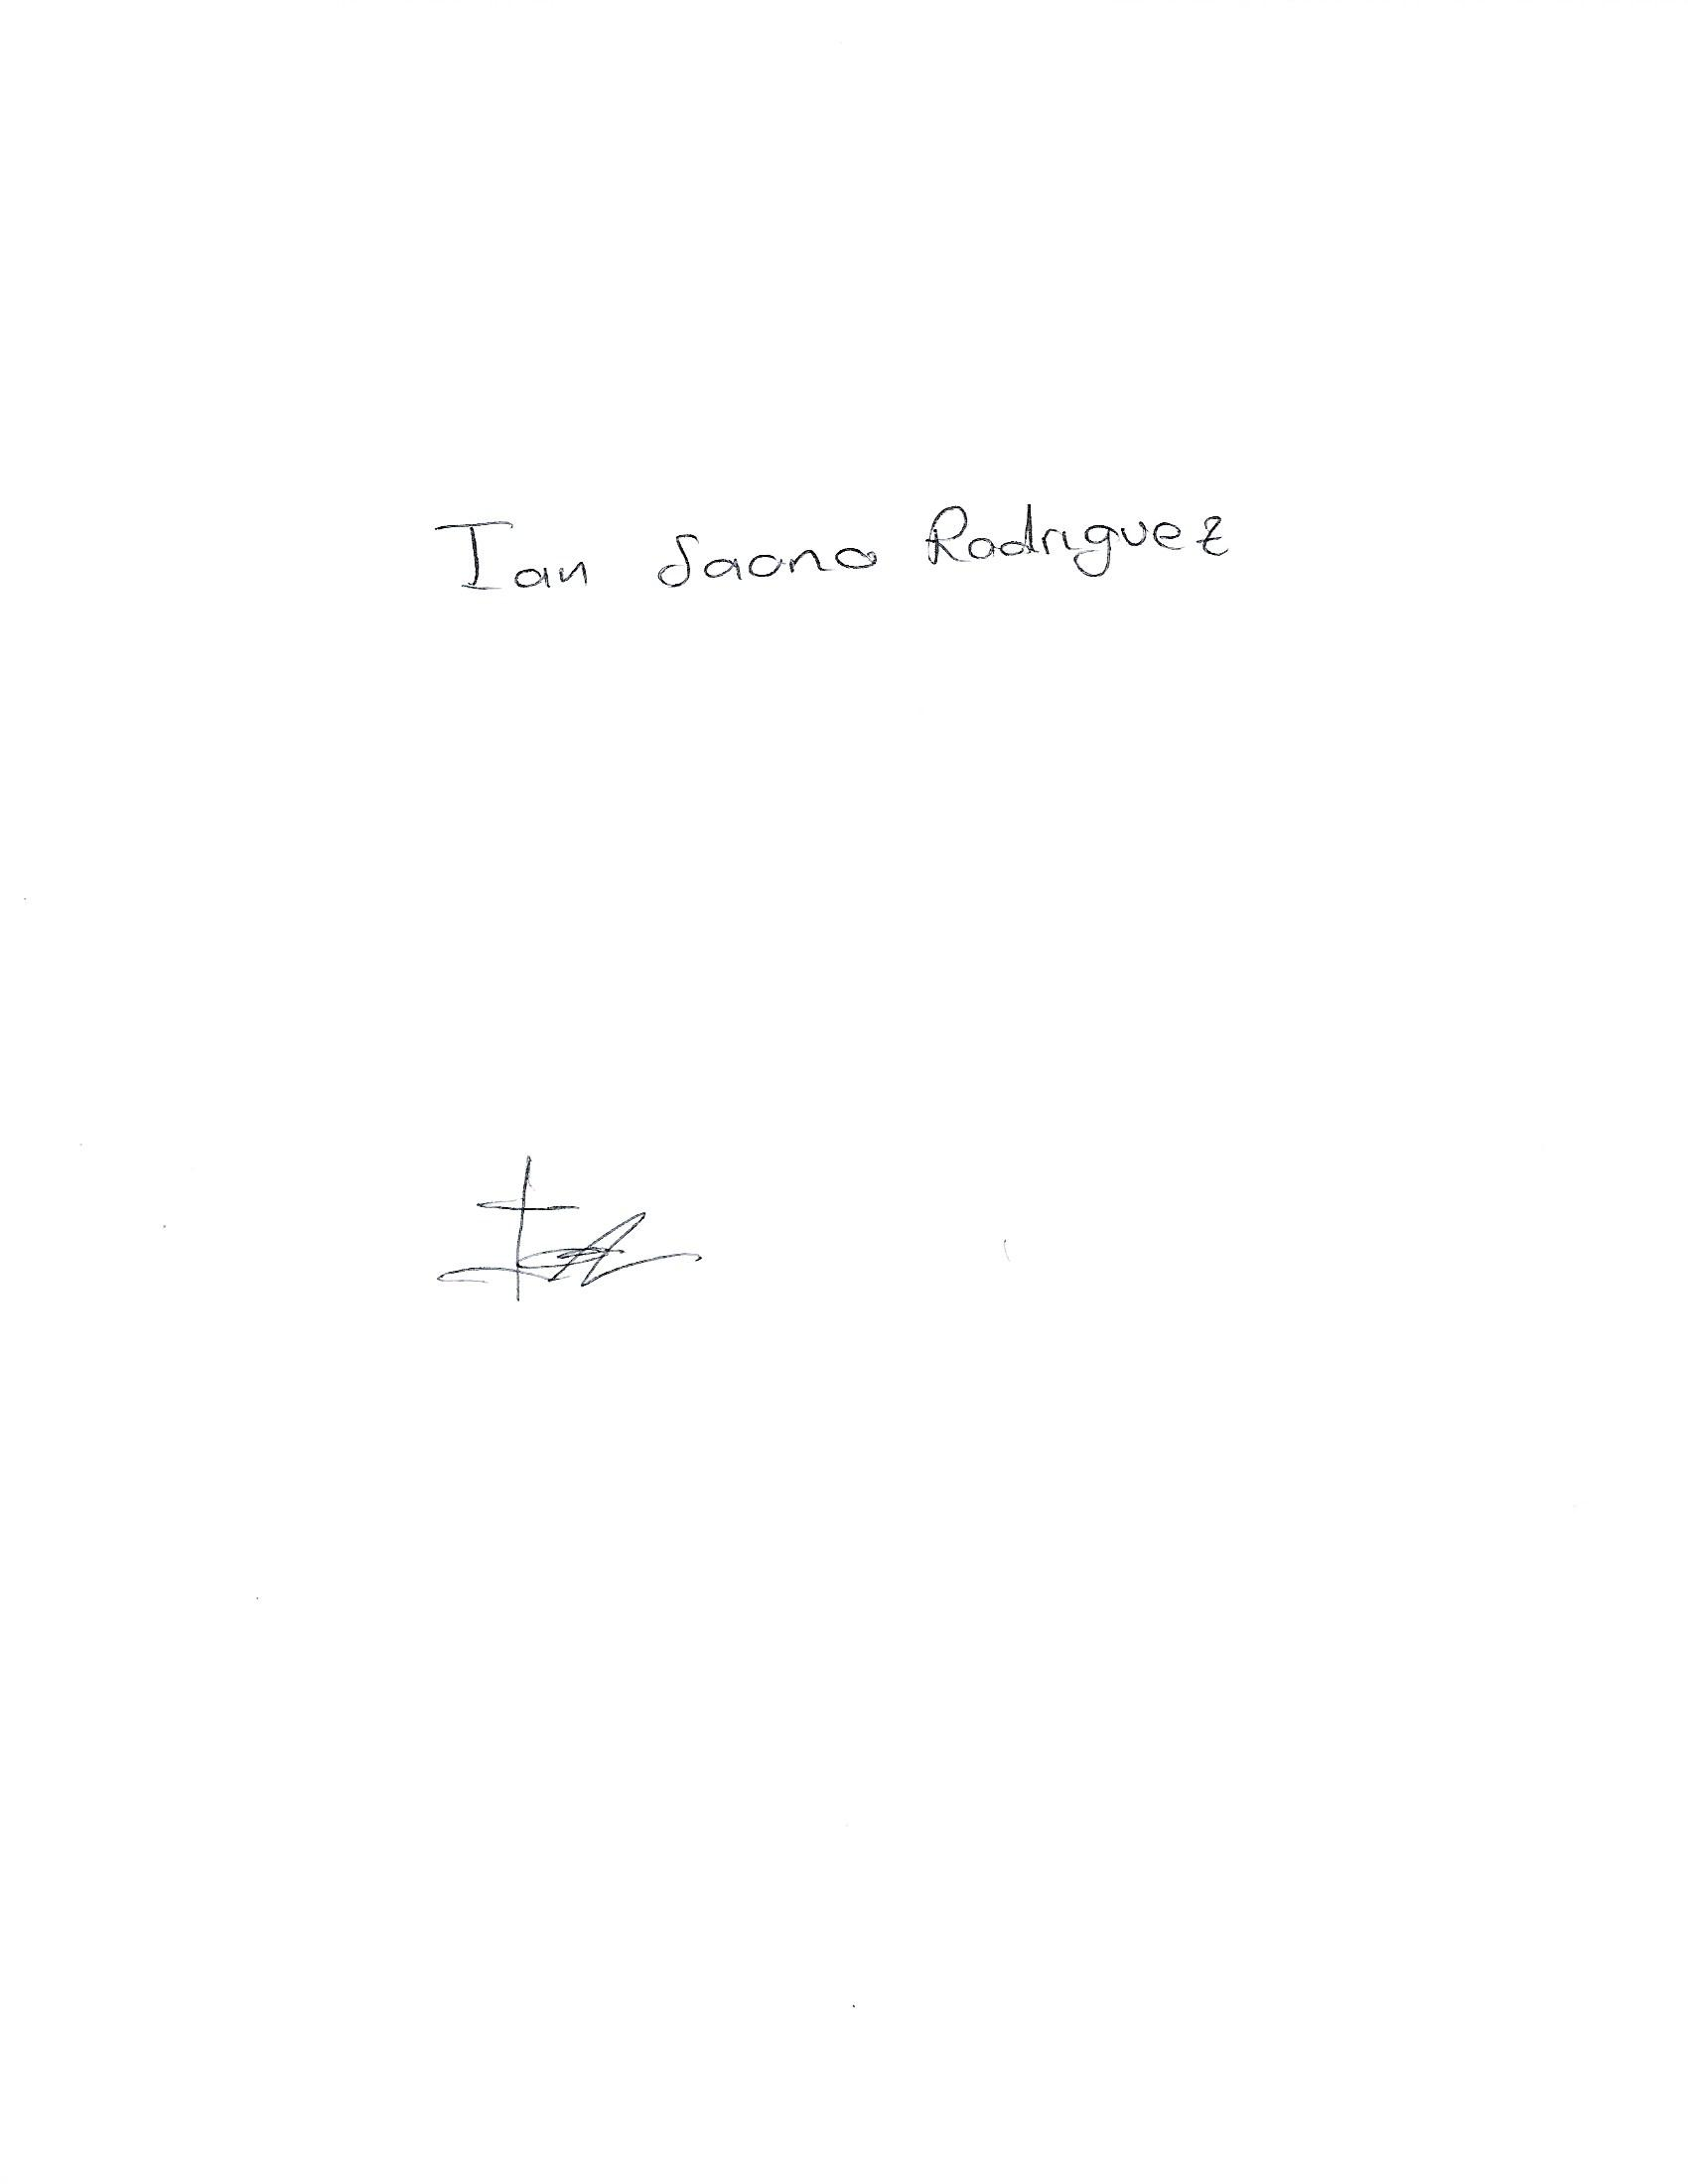 Ian Saona Rodriguez